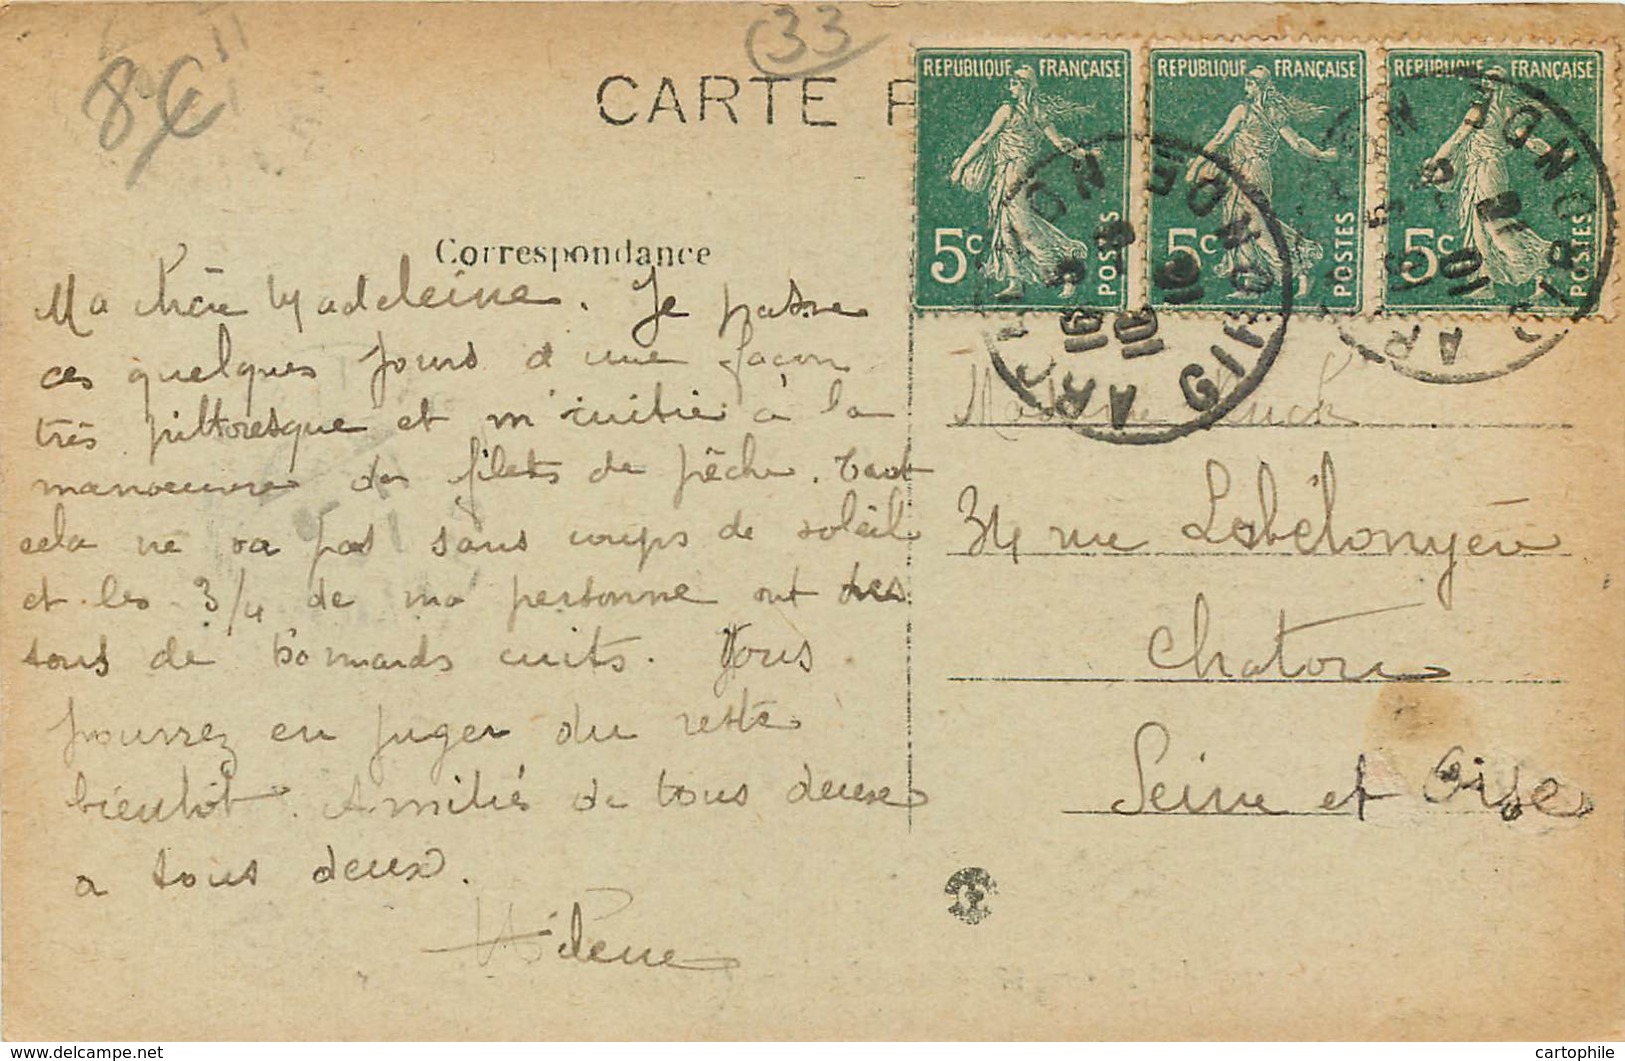 33
8€
CARTE P
REPUBLIQUE FRANÇAISE
5c POSTES
REPUBLIQUE FRANÇAISE
5c POSTES
REPUBLIQUE FRANÇAISE
5c POSTES
ARC GIRONDE
Correspondance
Ma chère Madeleine. Je passe
ces quelques jours d'une façon
très pittoresque et m'initie à la
manoeuvre des filets de pêche. Tout
cela ne va pas sans coups de soleil
et les 3/4 de ma personne ont des
tons de homards cuits. Vous
pourrez en juger du reste
bientôt. Amitiés de tous deux
a tous deux.
Hélène
34 rue Labélonyère
Chatou
Seine et Oise
cartophile